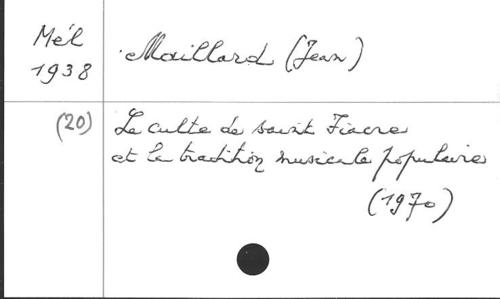 Mél
1938
Maillard (Jean)
(20)
Le culte de saint Fiacre
et la tradition musicale populaire
(1970)